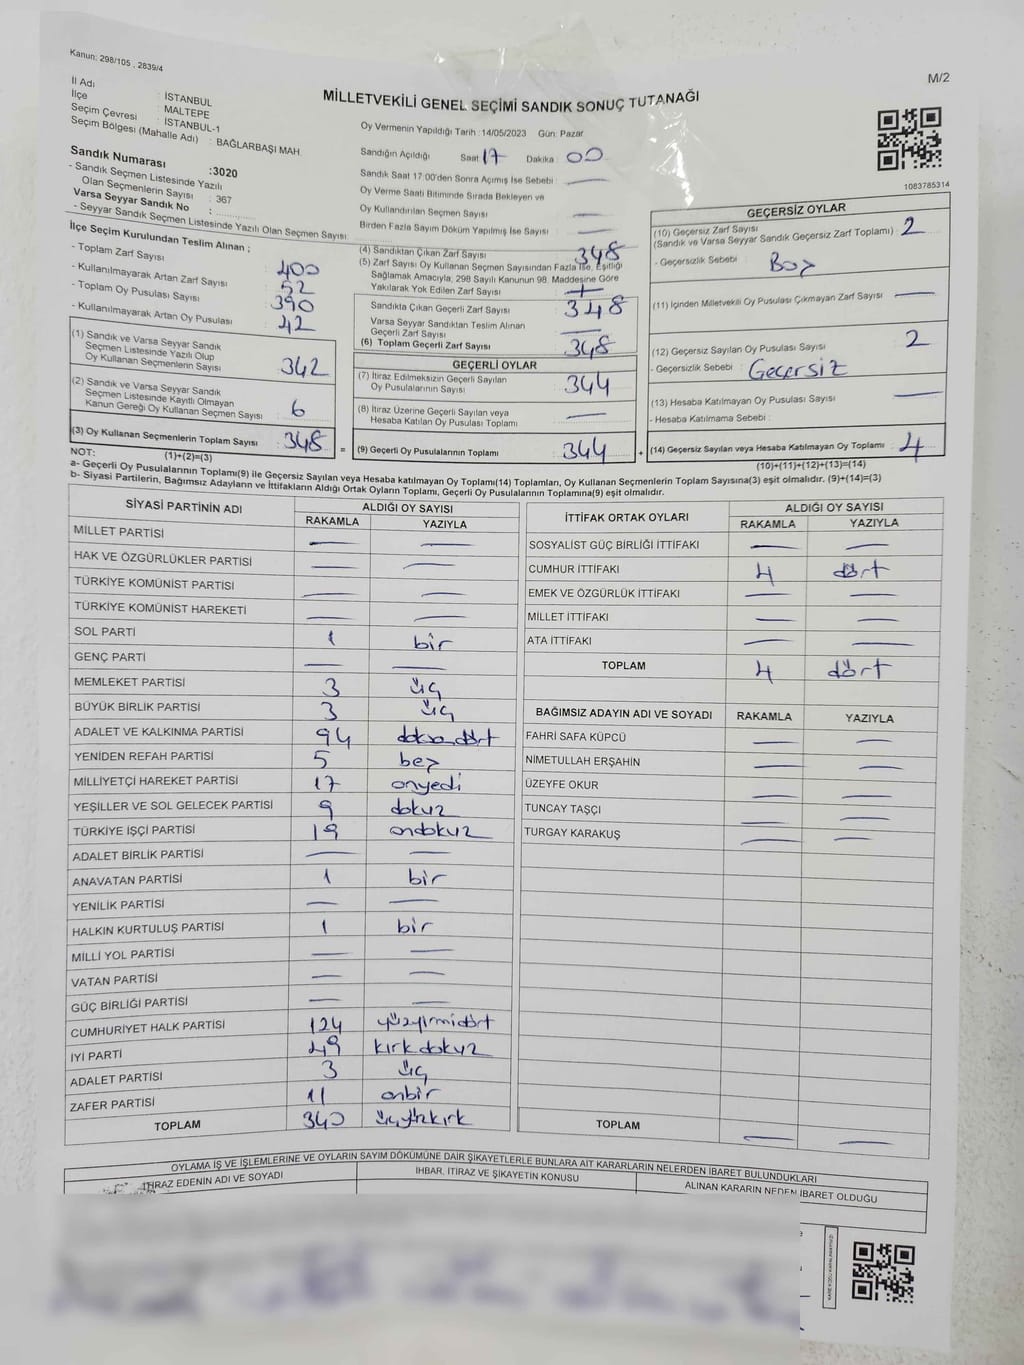 Kanun: 298/105 , 2839/4
M/2
MİLLETVEKİLİ GENEL SEÇİMİ SANDIK SONUÇ TUTANAĞI
İl Adı : İSTANBUL
İlçe : MALTEPE
Seçim Çevresi : İSTANBUL-1
Seçim Bölgesi (Mahalle Adı) : BAĞLARBAŞI MAH.
Sandık Numarası :3020
- Sandık Seçmen Listesinde Yazılı
Olan Seçmenlerin Sayısı : 367
Varsa Seyyar Sandık No :
- Seyyar Sandık Seçmen Listesinde Yazılı Olan Seçmen Sayısı:
Oy Vermenin Yapıldığı Tarih : 14/05/2023 Gün: Pazar
Sandığın Açıldığı Saat 17 Dakika : 00
Sandık Saat 17:00'den Sonra Açılmış İse Sebebi : —
Oy Verme Saati Bitiminde Sırada Bekleyen ve
Oy Kullandırılan Seçmen Sayısı : —
Birden Fazla Sayım Döküm Yapılmış İse Sayısı : —
1083785314
İlçe Seçim Kurulundan Teslim Alınan ;
- Toplam Zarf Sayısı : 400
- Kullanılmayarak Artan Zarf Sayısı : 52
- Toplam Oy Pusulası Sayısı : 390
- Kullanılmayarak Artan Oy Pusulası : 42
(1) Sandık ve Varsa Seyyar Sandık
Seçmen Listesinde Yazılı Olup
Oy Kullanan Seçmenlerin Sayısı : 342
(2) Sandık ve Varsa Seyyar Sandık
Seçmen Listesinde Kayıtlı Olmayan
Kanun Gereği Oy Kullanan Seçmen Sayısı : 6
(3) Oy Kullanan Seçmenlerin Toplam Sayısı : 348 =
(1)+(2)=(3)
(4) Sandıktan Çıkan Zarf Sayısı : 348
(5) Zarf Sayısı Oy Kullanan Seçmen Sayısından Fazla İse, Eşitliği
Sağlamak Amacıyla, 298 Sayılı Kanunun 98. Maddesine Göre
Yakılarak Yok Edilen Zarf Sayısı : —
Sandıkta Çıkan Geçerli Zarf Sayısı : 348
Varsa Seyyar Sandıktan Teslim Alınan
Geçerli Zarf Sayısı : —
(6) Toplam Geçerli Zarf Sayısı : 348
GEÇERLİ OYLAR
(7) İtiraz Edilmeksizin Geçerli Sayılan
Oy Pusulalarının Sayısı : 344
(8) İtiraz Üzerine Geçerli Sayılan veya
Hesaba Katılan Oy Pusulası Toplamı : —
(9) Geçerli Oy Pusulalarının Toplamı : 344 +
GEÇERSİZ OYLAR
(10) Geçersiz Zarf Sayısı
(Sandık ve Varsa Seyyar Sandık Geçersiz Zarf Toplamı) : 2
- Geçersizlik Sebebi : Boş
(11) İçinden Milletvekili Oy Pusulası Çıkmayan Zarf Sayısı : —
(12) Geçersiz Sayılan Oy Pusulası Sayısı : 2
- Geçersizlik Sebebi : Geçersiz
(13) Hesaba Katılmayan Oy Pusulası Sayısı : —
- Hesaba Katılmama Sebebi :
(14) Geçersiz Sayılan veya Hesaba Katılmayan Oy Toplamı : 4
(10)+(11)+(12)+(13)=(14)
NOT:
a- Geçerli Oy Pusulalarının Toplamı(9) ile Geçersiz veya Hesaba katılmayan Oy Toplamı(14) Toplamları, Oy Kullanan Seçmenlerin Toplam Sayısına(3) eşit olmalıdır. (9)+(14)=(3)
b- Siyasi Partilerin, Bağımsız Adayların ve İttifakların Aldığı Ortak Oyların Toplamı, Geçerli Oy Pusulalarının Toplamına(9) eşit olmalıdır.
SİYASİ PARTİNİN ADI ALDIĞI OY SAYISI
RAKAMLA YAZIYLA
MİLLET PARTİSİ — —
HAK VE ÖZGÜRLÜKLER PARTİSİ — —
TÜRKİYE KOMÜNİST PARTİSİ — —
TÜRKİYE KOMÜNİST HAREKETİ — —
SOL PARTİ 1 bir
GENÇ PARTİ — —
MEMLEKET PARTİSİ 3 üç
BÜYÜK BİRLİK PARTİSİ 3 üç
ADALET VE KALKINMA PARTİSİ 94 doksandört
YENİDEN REFAH PARTİSİ 5 beş
MİLLİYETÇİ HAREKET PARTİSİ 17 onyedi
YEŞİLLER VE SOL GELECEK PARTİSİ 9 dokuz
TÜRKİYE İŞÇİ PARTİSİ 19 ondokuz
ADALET BİRLİK PARTİSİ — —
ANAVATAN PARTİSİ 1 bir
YENİLİK PARTİSİ — —
HALKIN KURTULUŞ PARTİSİ 1 bir
MİLLİ YOL PARTİSİ — —
VATAN PARTİSİ — —
GÜÇ BİRLİĞİ PARTİSİ — —
CUMHURİYET HALK PARTİSİ 124 yüzyirmidört
İYİ PARTİ 49 kırkdokuz
ADALET PARTİSİ 3 üç
ZAFER PARTİSİ 11 onbir
TOPLAM 340 üçyüzkırk
İTTİFAK ORTAK OYLARI ALDIĞI OY SAYISI
RAKAMLA YAZIYLA
SOSYALİST GÜÇ BİRLİĞİ İTTİFAKI — —
CUMHUR İTTİFAKI 4 dört
EMEK VE ÖZGÜRLÜK İTTİFAKI — —
MİLLET İTTİFAKI — —
ATA İTTİFAKI — —
TOPLAM 4 dört
BAĞIMSIZ ADAYIN ADI VE SOYADI RAKAMLA YAZIYLA
FAHRİ SAFA KÜPCÜ — —
NİMETULLAH ERŞAHİN — —
ÜZEYFE OKUR — —
TUNCAY TAŞÇI — —
TURGAY KARAKUŞ — —
TOPLAM — —
OYLAMA İŞ VE İŞLEMLERİNE VE OYLARIN SAYIM DÖKÜMÜNE DAİR ŞİKAYETLERLE BUNLARA AİT KARARLARIN NELERDEN İBARET BULUNDUKLARI
İTİRAZ EDENİN ADI VE SOYADI İHBAR, İTİRAZ VE ŞİKAYETİN KONUSU ALINAN KARARIN NEDEN İBARET OLDUĞU